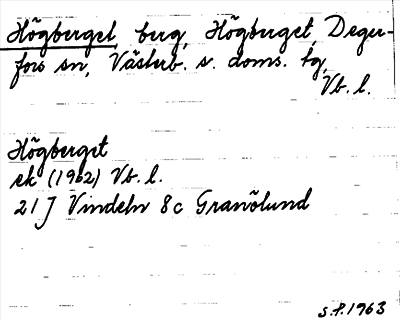 Högberget, berg, Högberget Deger-
fors sn, Västerb. s. doms. tg,
Vb. l.
Högberget
ek (1962) Vb. l.
21 J Vindeln 8c Granölund
S.f. 1963